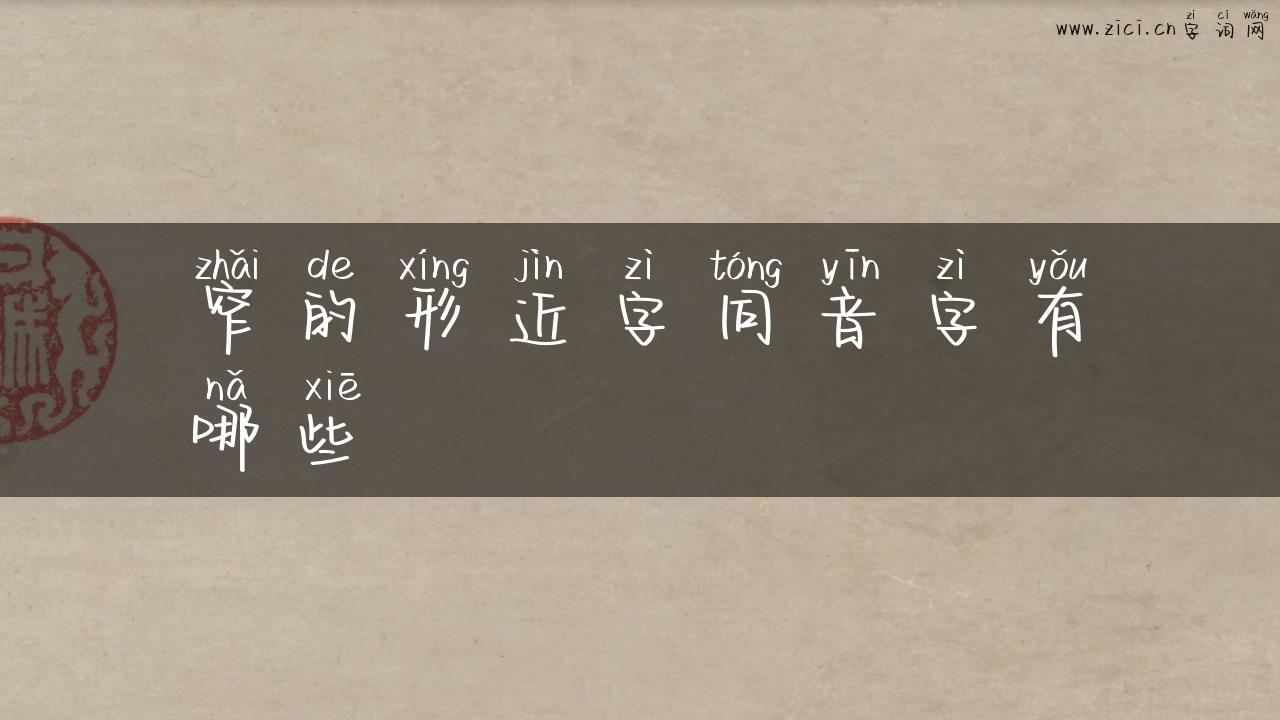 zì cí wǎng
www.zici.cn 字词网
zhǎi de xíng jìn zì tóng yīn zì yǒu
窄的形近字同音字有
nǎ xiē
哪些